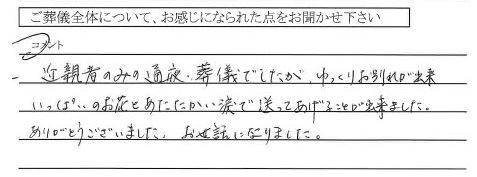 ご葬儀全体について、お感じになられた点をお聞かせ下さい
コメント
近親者のみの通夜、葬儀でしたが、ゆっくりお別れが出来
いっぱいのお花とあたたかい涙で送ってあげることが出来ました。
ありがとうございました。お世話になりました。